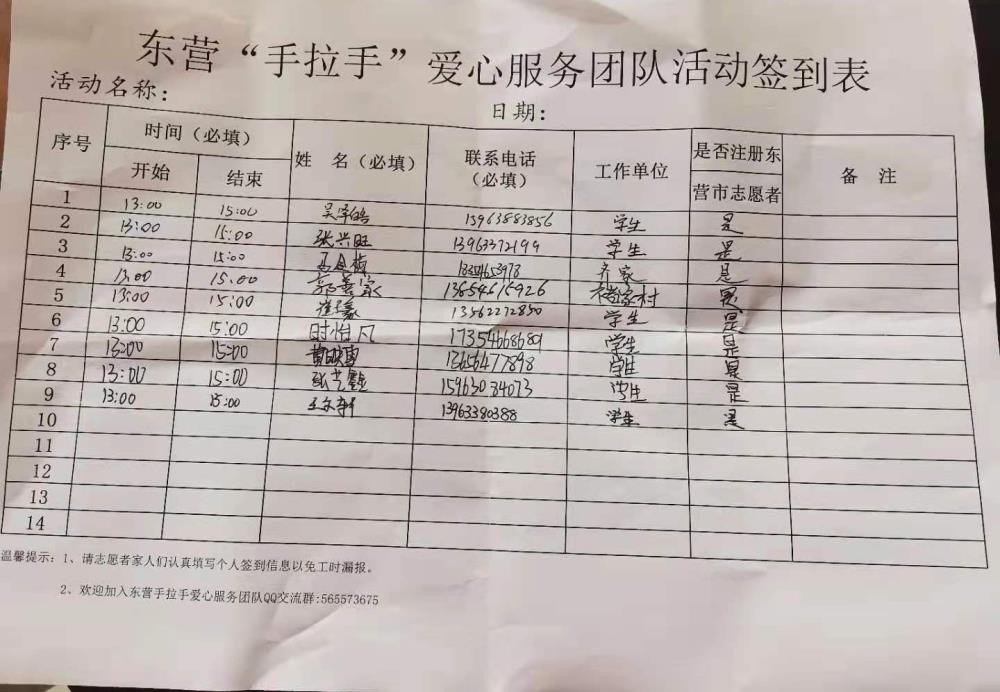 东营“手拉手”爱心服务团队活动签到表
活动名称： 日期：
序号 时间（必填） 姓 名（必填） 联系电话（必填） 工作单位 是否注册东营市志愿者 备 注
开始 结束
1 13:00 15:00 15963883856 学生 是
2 13:00 15:00 张兴旺 13963372199 学生 是
3 13:00 15:00 齐家 是
4 13:00 15:00 13654615926 是
5 13:00 15:00 13562272850 学生 是
6 13:00 15:00 时怡凡 17354668689 学生 是
7 13:00 15:00 13656477898 学生 是
8 13:00 15:00 15963084073 学生 是
9 13:00 15:00 13963380388 学生 是
10
11
12
13
14
温馨提示：1、请志愿者家人们认真填写个人签到信息以免工时漏报。
2、欢迎加入东营手拉手爱心服务团队QQ交流群:565573675